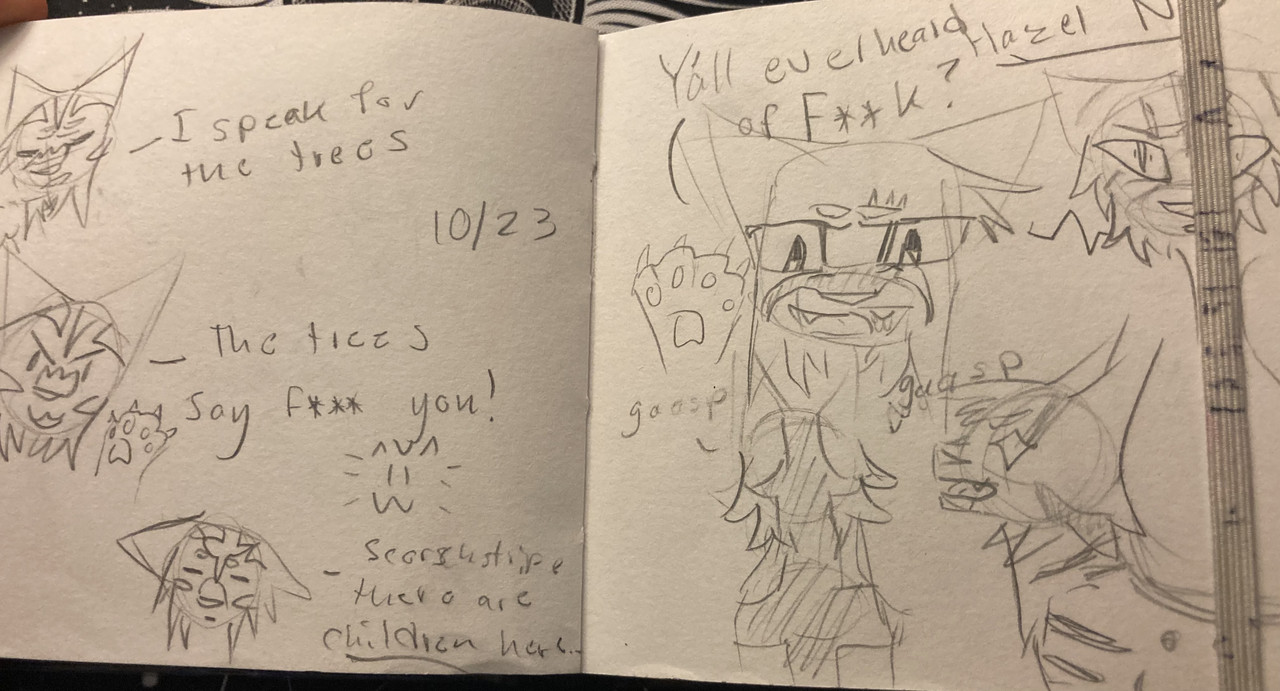 I speak for
the trees
10/23
The trees
say f*** you!
Scorchstripe
there are
children here..
Y'all ever heard
of F**k?
Hazel N
gaasp
gaasp